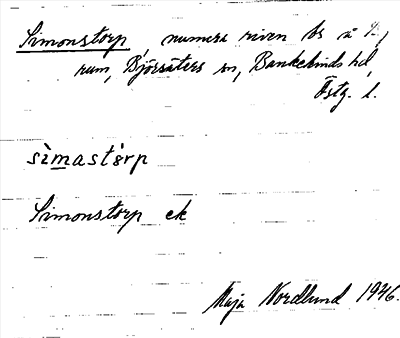 Simonstorp, numera riven bs å
rum, Björsäters sn, Bankekinds hd,
Östg. l.
sìmastɵrp
Simonstorp ek
Maja Nordlund 1946.